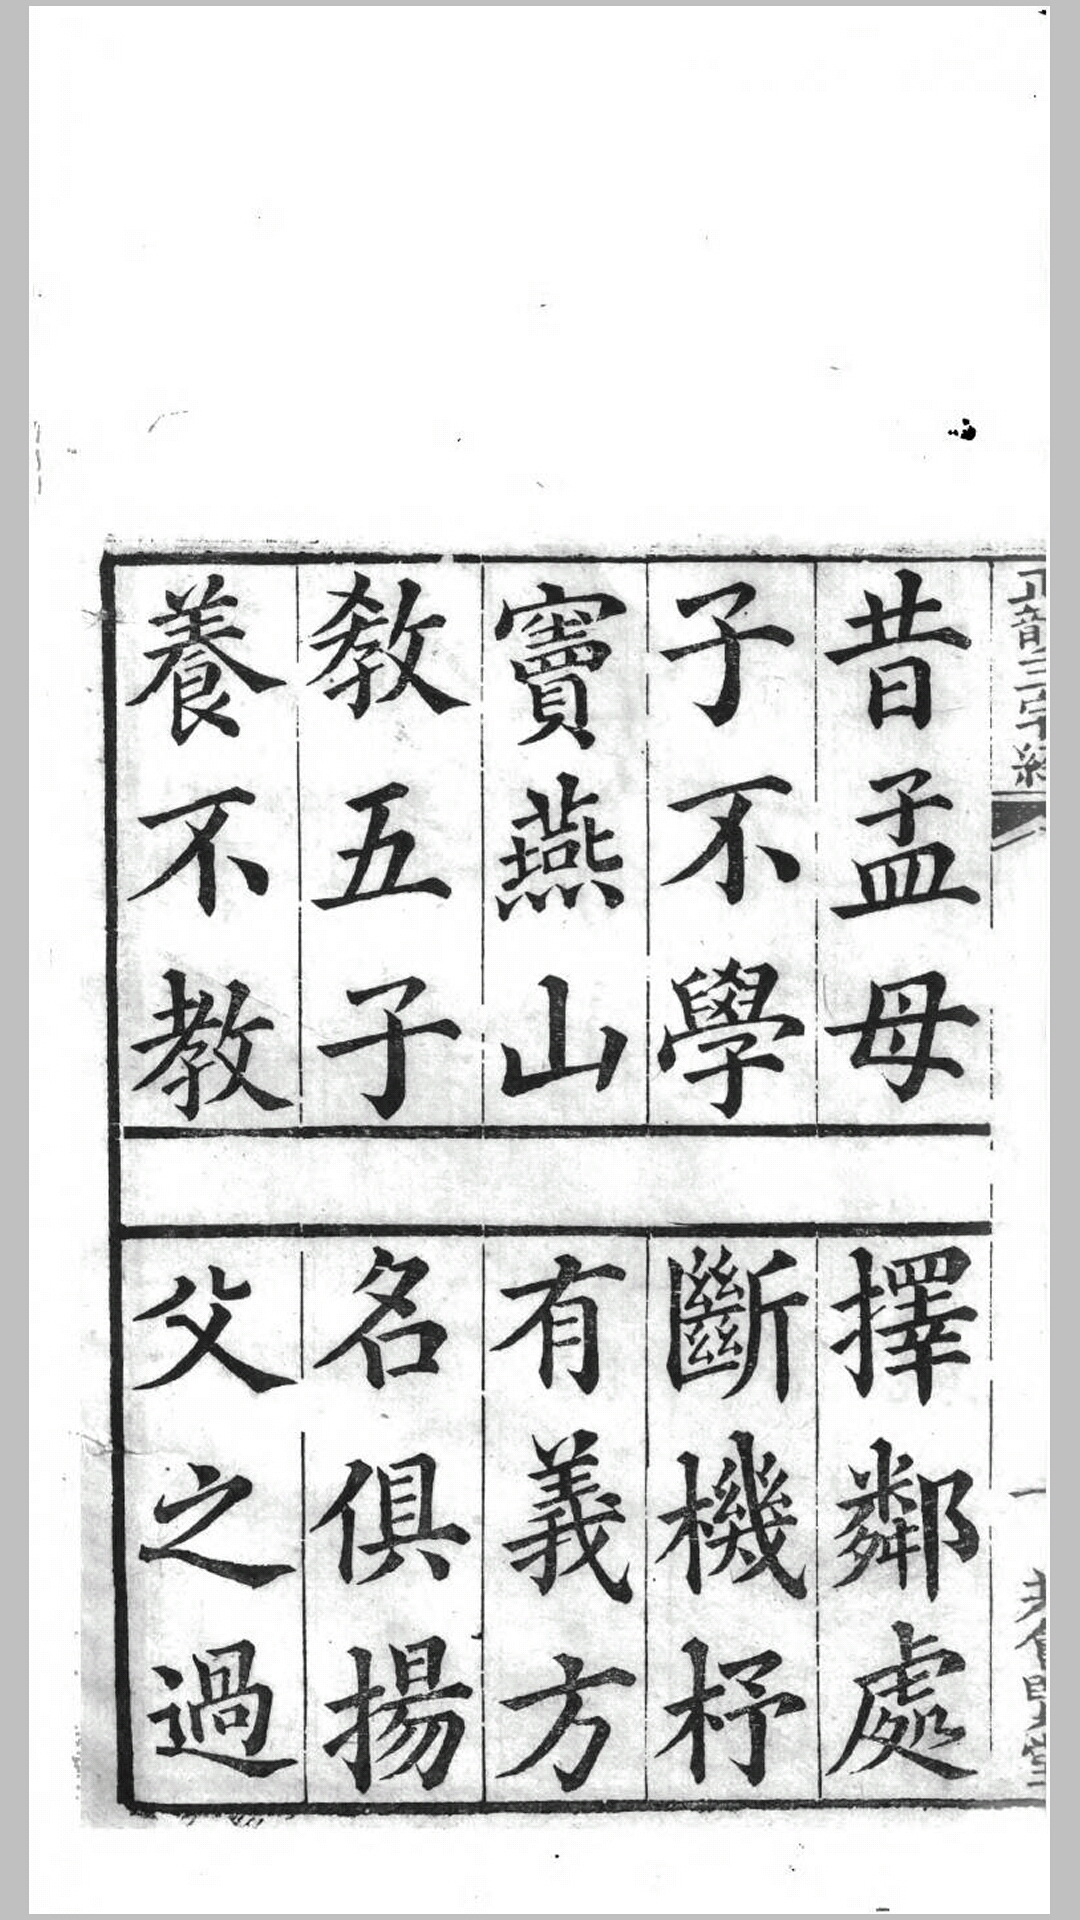 昔孟母
擇鄰處
子不學
斷機杼
竇燕山
有義方
教五子
名俱揚
養不教
父之過
三字經
一